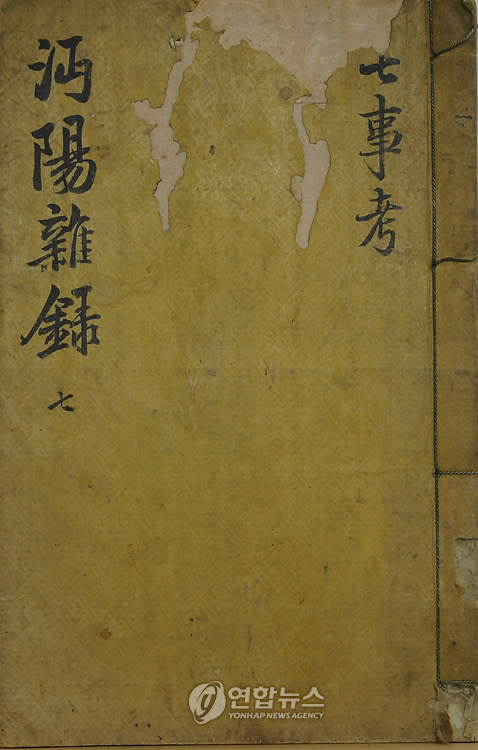 七事考
沔陽雜錄 七
연합뉴스
YONHAP NEWS AGENCY